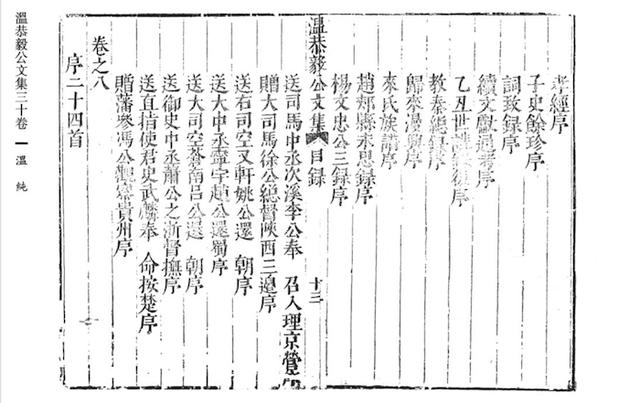 孝經序
子史餘珍序
詞致録序
續文獻通考序
乙丑世講序
教秦總録序
歸來漫興序
來氏族譜序
趙郟縣永思録序
楊文忠公三録序
溫恭毅公文集 目録 十三
送司馬中丞次溪李公奉 召入理京營序
贈大司馬徐公總督陝西三邊序
送右司空又軒姚公還 朝序
送大中丞霽宇趙公還蜀序
送大司空春南呂公還 朝序
送御史中丞蕭公之浙督撫序
送直指使君史武麟奉 命按楚序
贈藩參馮公觀察貴州序
卷之八
序二十四首
溫恭毅公文集三十卷 一 溫 純